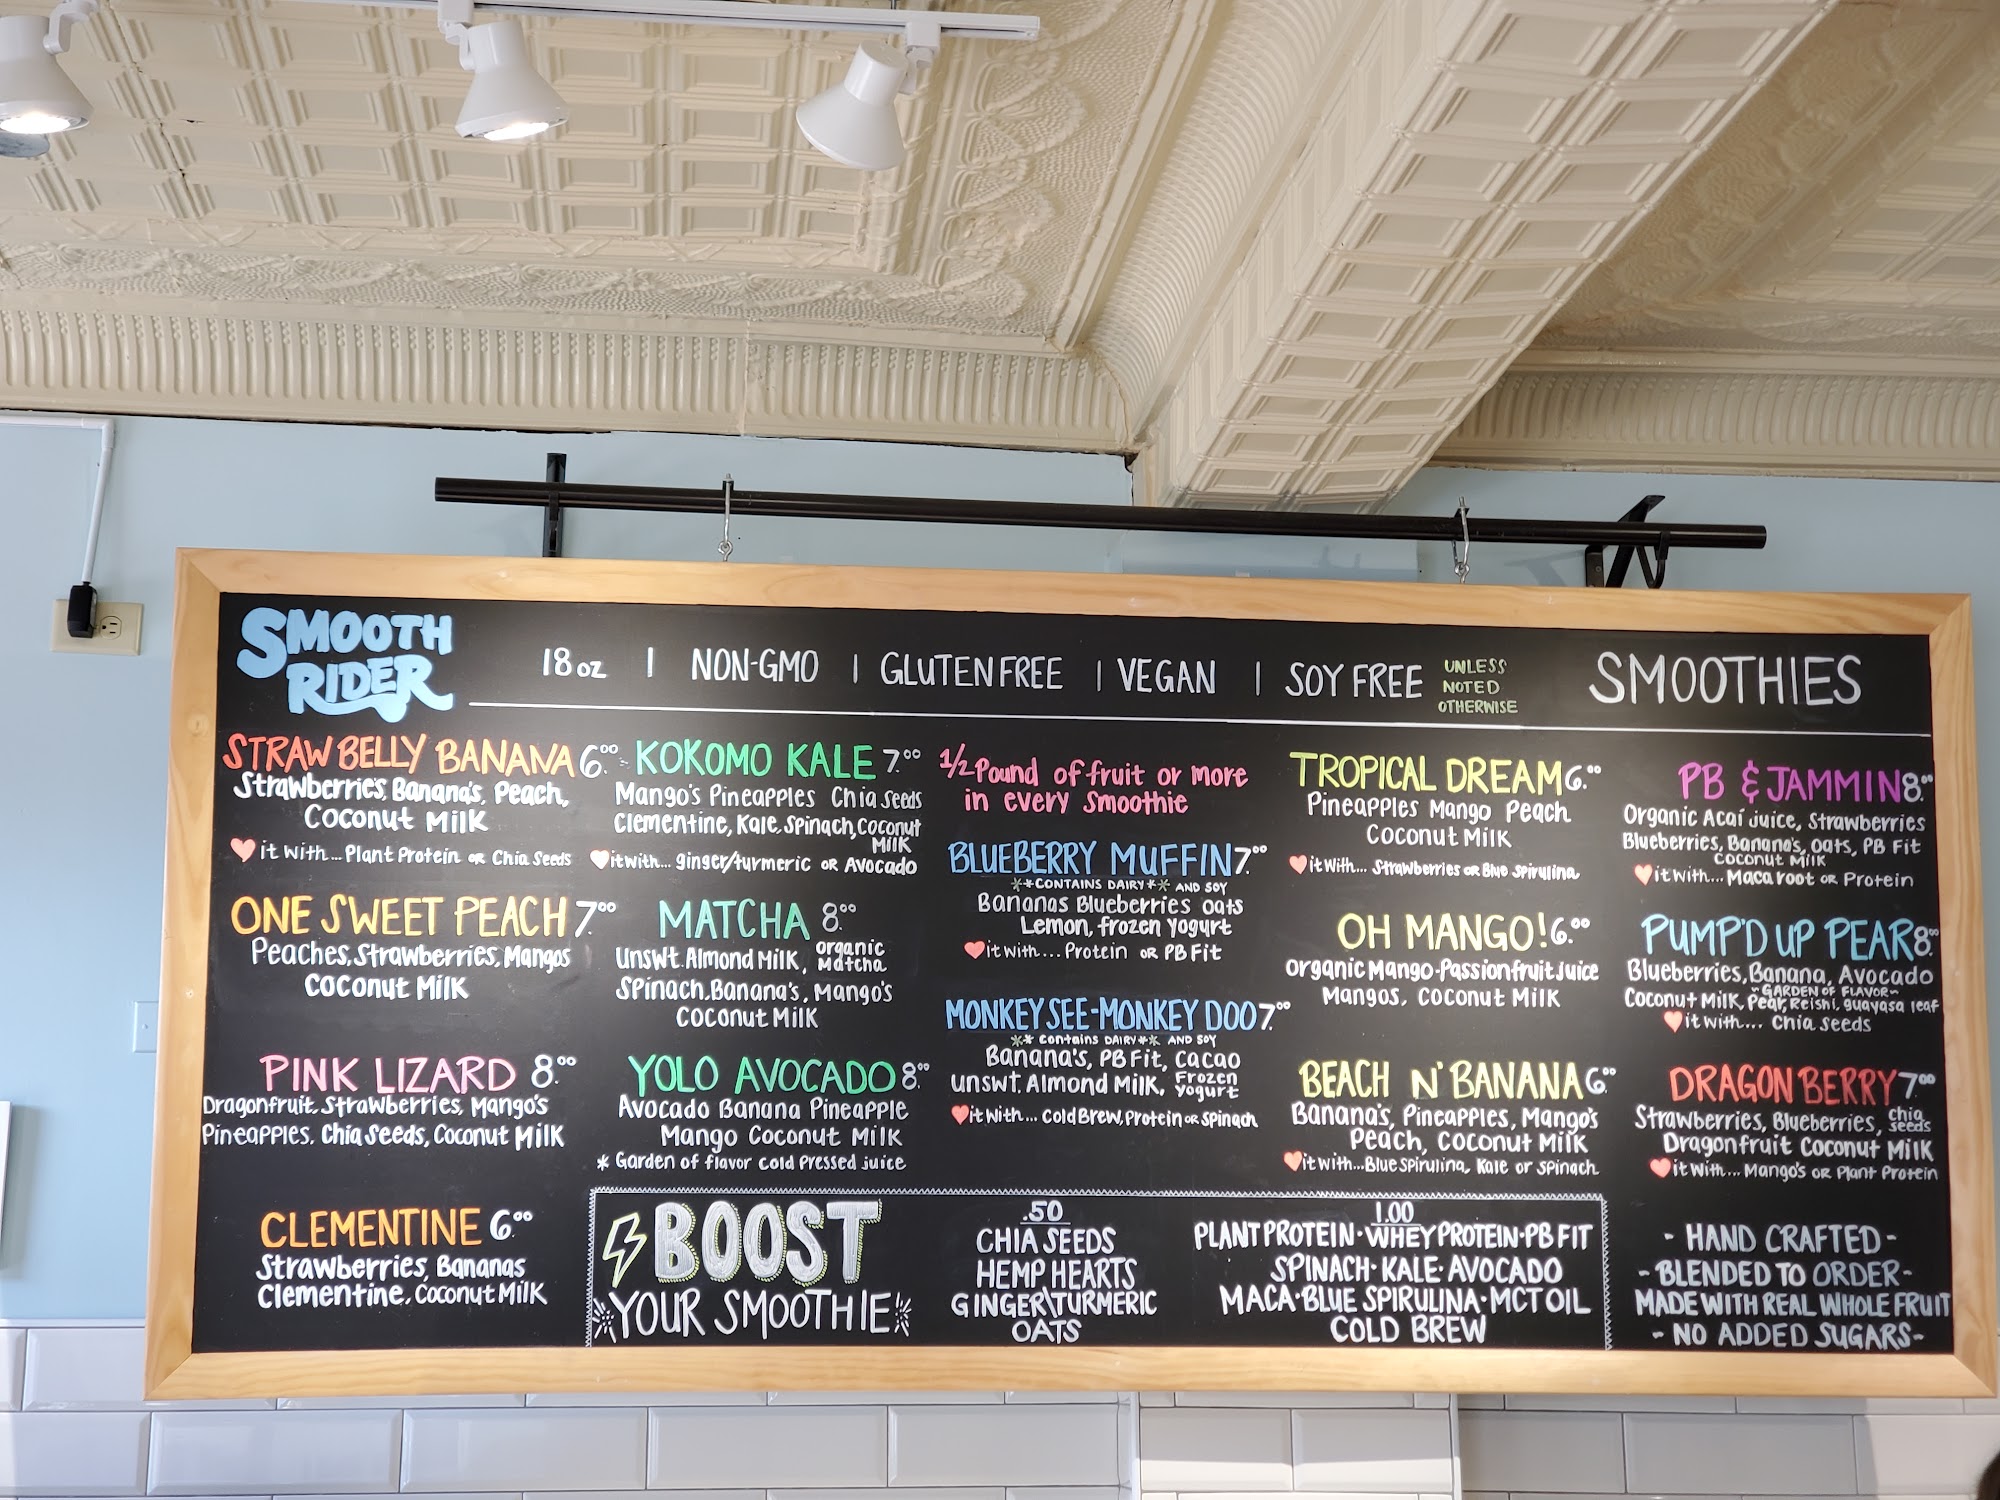 SMOOTH
RIDER
18 oz | NON-GMO | GLUTEN FREE | VEGAN | SOY FREE
UNLESS
NOTED
OTHERWISE
SMOOTHIES
STRAW BELLY BANANA 6.00
Strawberries, Banana's, Peach,
Coconut Milk
♥ it with... Plant Protein or Chia Seeds
ONE SWEET PEACH 7.00
Peaches, Strawberries, Mangos
Coconut Milk
PINK LIZARD 8.00
Dragonfruit, Strawberries, Mango's
Pineapples, Chia Seeds, Coconut Milk
CLEMENTINE 6.00
Strawberries, Bananas
Clementine, Coconut Milk
KOKOMO KALE 7.00
Mango's Pineapples Chia Seeds
Clementine, Kale, Spinach, Coconut
Milk
♥ it with... ginger/turmeric or Avocado
MATCHA 8.00
Unswt. Almond Milk, Organic
Matcha
Spinach, Banana's, Mango's
Coconut Milk
YOLO AVOCADO 8.00
Avocado Banana Pineapple
Mango Coconut Milk
* Garden of flavor cold pressed juice
1/2 Pound of fruit or more
in every Smoothie
BLUEBERRY MUFFIN 7.00
**CONTAINS DAIRY** AND SOY
Bananas Blueberries oats
Lemon, frozen yogurt
♥ it with.... Protein or PB Fit
MONKEY SEE-MONKEY DOO 7.00
** Contains DAIRY** AND SOY
Banana's, PB Fit, Cacao
unswt. Almond Milk, Frozen
Yogurt
♥ it with... Cold Brew, Protein or Spinach
TROPICAL DREAM 6.00
Pineapples Mango Peach
Coconut Milk
♥ it with... Strawberries or Blue Spirulina
OH MANGO! 6.00
Organic Mango-Passionfruit Juice
Mangos, Coconut Milk
BEACH N' BANANA 6.00
Banana's, Pineapples, Mango's
Peach, Coconut Milk
♥ it with... Blue Spirulina, Kale or Spinach
PB & JAMMIN 8.00
Organic Acaí Juice, Strawberries
Blueberries, Banana's, oats, PB Fit
Coconut Milk
♥ it with... Maca root or Protein
PUMP'D UP PEAR 8.00
Blueberries, Banana, Avocado
~GARDEN OF FLAVOR~
Coconut Milk, Pear, Reishi, guayasa leaf
♥ it with.... Chia seeds
DRAGON BERRY 7.00
Strawberries, Blueberries, chia
seeds
Dragonfruit Coconut Milk
♥ it with... Mango's or Plant Protein
BOOST
YOUR SMOOTHIE
.50
CHIA SEEDS
HEMP HEARTS
GINGER\TURMERIC
OATS
1.00
PLANT PROTEIN · WHEY PROTEIN · PB FIT
SPINACH · KALE · AVOCADO
MACA · BLUE SPIRULINA · MCT OIL
COLD BREW
- HAND CRAFTED -
- BLENDED TO ORDER -
MADE WITH REAL WHOLE FRUIT
- NO ADDED SUGARS -